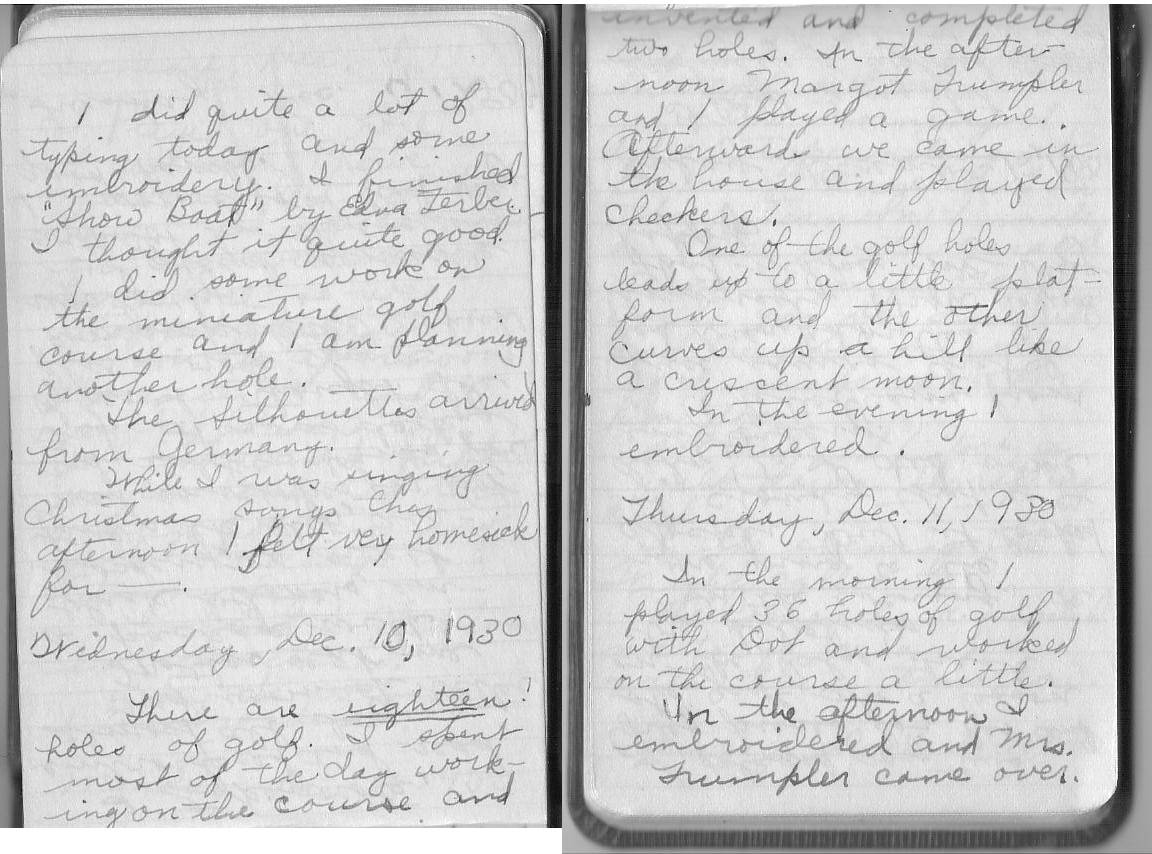 I did quite a lot of
typing today and some
embroidery. I finished
"Show Boat" by Edna Ferber.
I thought it quite good.
I did some work on
the miniature golf
course and I am planning
another hole.
The silhouettes arrived
from Germany.
While I was singing
Christmas songs this
afternoon I felt very homesick
for ——.
Wednesday, Dec. 10, 1930
There are eighteen!
holes of golf. I spent
most of the day work-
ing on the course and
invented and completed
two holes. In the after-
noon Margot Trumpler
and I played a game.
Afterwards we came in
the house and played
checkers.
One of the golf holes
leads up to a little plat-
form and the other
curves up a hill like
a crescent moon.
In the evening I
embroidered.
Thursday, Dec. 11, 1930
In the morning I
played 36 holes of golf
with Dot and worked
on the course a little.
In the afternoon I
embroidered and Mrs.
Trumpler came over.